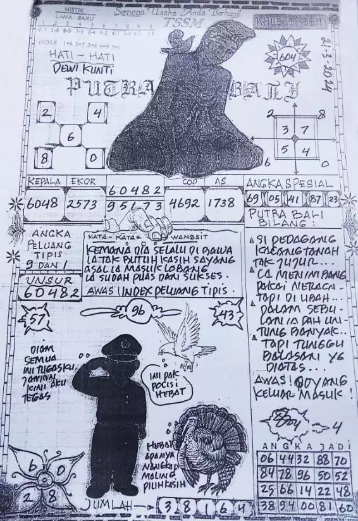 MISTIK
Semoga Usaha Anda Berhasil
LIMA BARU
INDEX
HATI - HATI
DEWI KUNTI
PUTRA BALI
604
21-3-2024
2 4
6
8 0
2 8
3 7
5 4
6 0
KEPALA EKOR
60482
COP AS
ANGKA SPESIAL
6048 2573 95173 4692 1738
69 05 41 87 23
PUTRA BALI
BILANG :
ANGKA
PELUANG
TIPIS
9 DAN 1
UNSUR
60482
KATA - KATA WANGSIT
KEMANA DIA SELALU DI BAWA
LA TAK BUTUH KASIH SAYANG
ASAL LA MASUK LOBANG
LA SUDAH PUAS DAN SUKSES.
AWAS INDEX PELUANG TIPIS.
SI PEDAGANG
KACANG TANAH
TAK JUJUR...
LA MENIMBANG
PAKAI NERACA
TAPI DI UBAH...
DALAM SEBU-
LAN IA DAH UN-
TUNG BANYAK.
TAPI TUNGGU
BALASAN YG
DIATAS...
AWAS! GOYANG
KELUAR MASUK!
57
96
43
DIAM
SEMUA
INI TUGASKU
KINI AKU
TEGAS
INI PAK
POLISI
HEBAT
HEBAT
NANGKAP
MALING
PILIH KASIH
4
ANGKA JADI
06 44 32 88 70
84 78 96 50 52
25 66 14 22 48
38 94 00 81 60
6 0
2 8
JUMLAH → 3 8 1 6 4